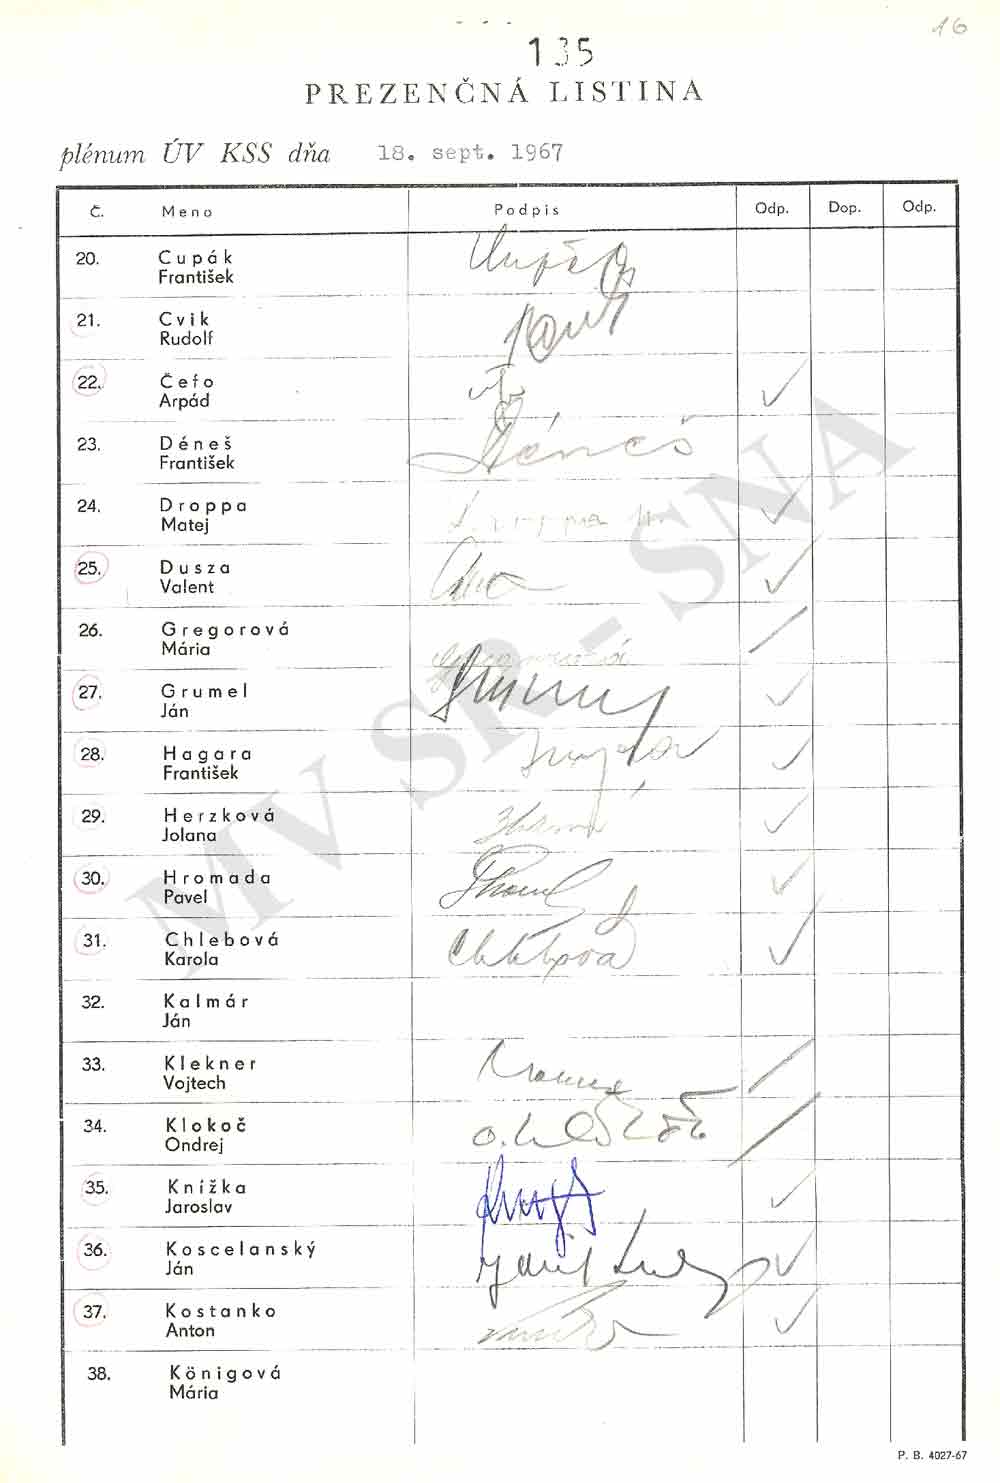 16
135
PREZENČNÁ LISTINA
plénum ÚV KSS dňa 18. sept. 1967
Č. Meno Podpis Odp. Dop. Odp.
20. Cupák
František
21. Cvik
Rudolf
22. Čefo
Arpád
23. Déneš Déneš
František
24. Droppa
Matej
25. Dusza
Valent
26. Gregorová Gregorová
Mária
27. Grumel
Ján
28. Hagara
František
29. Herzková
Jolana
30. Hromada
Pavel
31. Chlebová Chlebová
Karola
32. Kalmár
Ján
33. Klekner
Vojtech
34. Klokoč
Ondrej
35. Knižka
Jaroslav
36. Koscelanský
Ján
37. Kostanko
Anton
38. Königová
Mária
MV SR - SNA
P. B. 4027-67